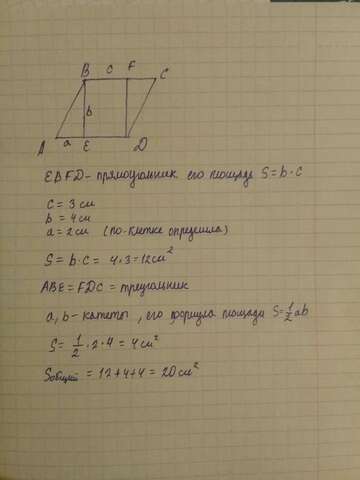 B c F C
b
A a E D
EBFD - прямоугольник его площадь S = b · c
c = 3 см
b = 4 см
a = 2 см (по клетке определила)
S = b · c = 4 · 3 = 12 см²
ABE = FDC = треугольник
a, b - катеты, его формула площади S = ½ ab
S = ½ · 2 · 4 = 4 см²
Sобщей = 12 + 4 + 4 = 20 см²